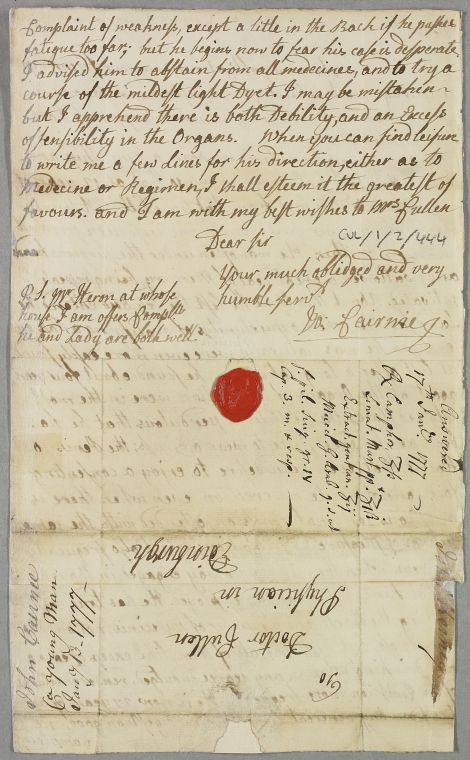 Complaint of weakness, except a little in the Back if he pushes
fatigue too far; but he begins now to fear his case is desperate.
I advised him to abstain from all medecines, and to try a
course of the mildest light Dyet. I may be mistaken –
but I apprehend there is both Debility, and an Excess
of sensibility in the Organs. When you can find leisure
to write me a few lines for his direction, either as to
Medecine or Regimen, I shall esteem it the greatest of
favours. and I am with my best wishes to Mrs Cullen
Dear Sir
CUL/1/2/444
Your much obliedged and very
humble servt
Jo: Cairnie
P.S. Mr Heron at whose
house I am offers Complts
he and Lady are both well
Answered
17th Janry 1777
Rx Camphor
Extract
m. & vesp.
To
Doctor Cullen
Physician in
Edinburgh
John Cairnie
Co young Man
Janry 13. 1777